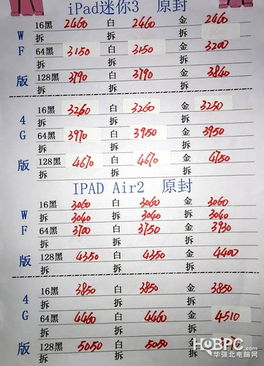 iPad迷你3 原封
16黑 2460 白 2460 金 2460
拆 拆 拆
W
64黑 3150 白 3150 金 3200
F
拆 拆 拆
128黑 3790 白 3790 金 3840
版
拆 拆 拆
16黑 3260 白 3260 金 3250
4
拆 拆 拆
64黑 3970 白 3950 金 3950
G
拆 拆 拆
128黑 4670 白 4670 金 4750
版
拆 拆 拆
IPAD Air2 原封
16黑 3060 白 3060 金 3060
W
拆 3040 拆 3040 拆 3040
F
64黑 3700 白 3750 金 3930
拆 拆 拆
版
128黑 4350 白 4350 金 4400
拆 拆 拆
16黑 3850 白 3850 金 3850
4
拆 拆 拆
G
64黑 4460 白 4460 金 4510
拆 拆 拆
版
128黑 5050 白 5050 金
拆 拆 拆
HQBPC.com
华强北电脑网